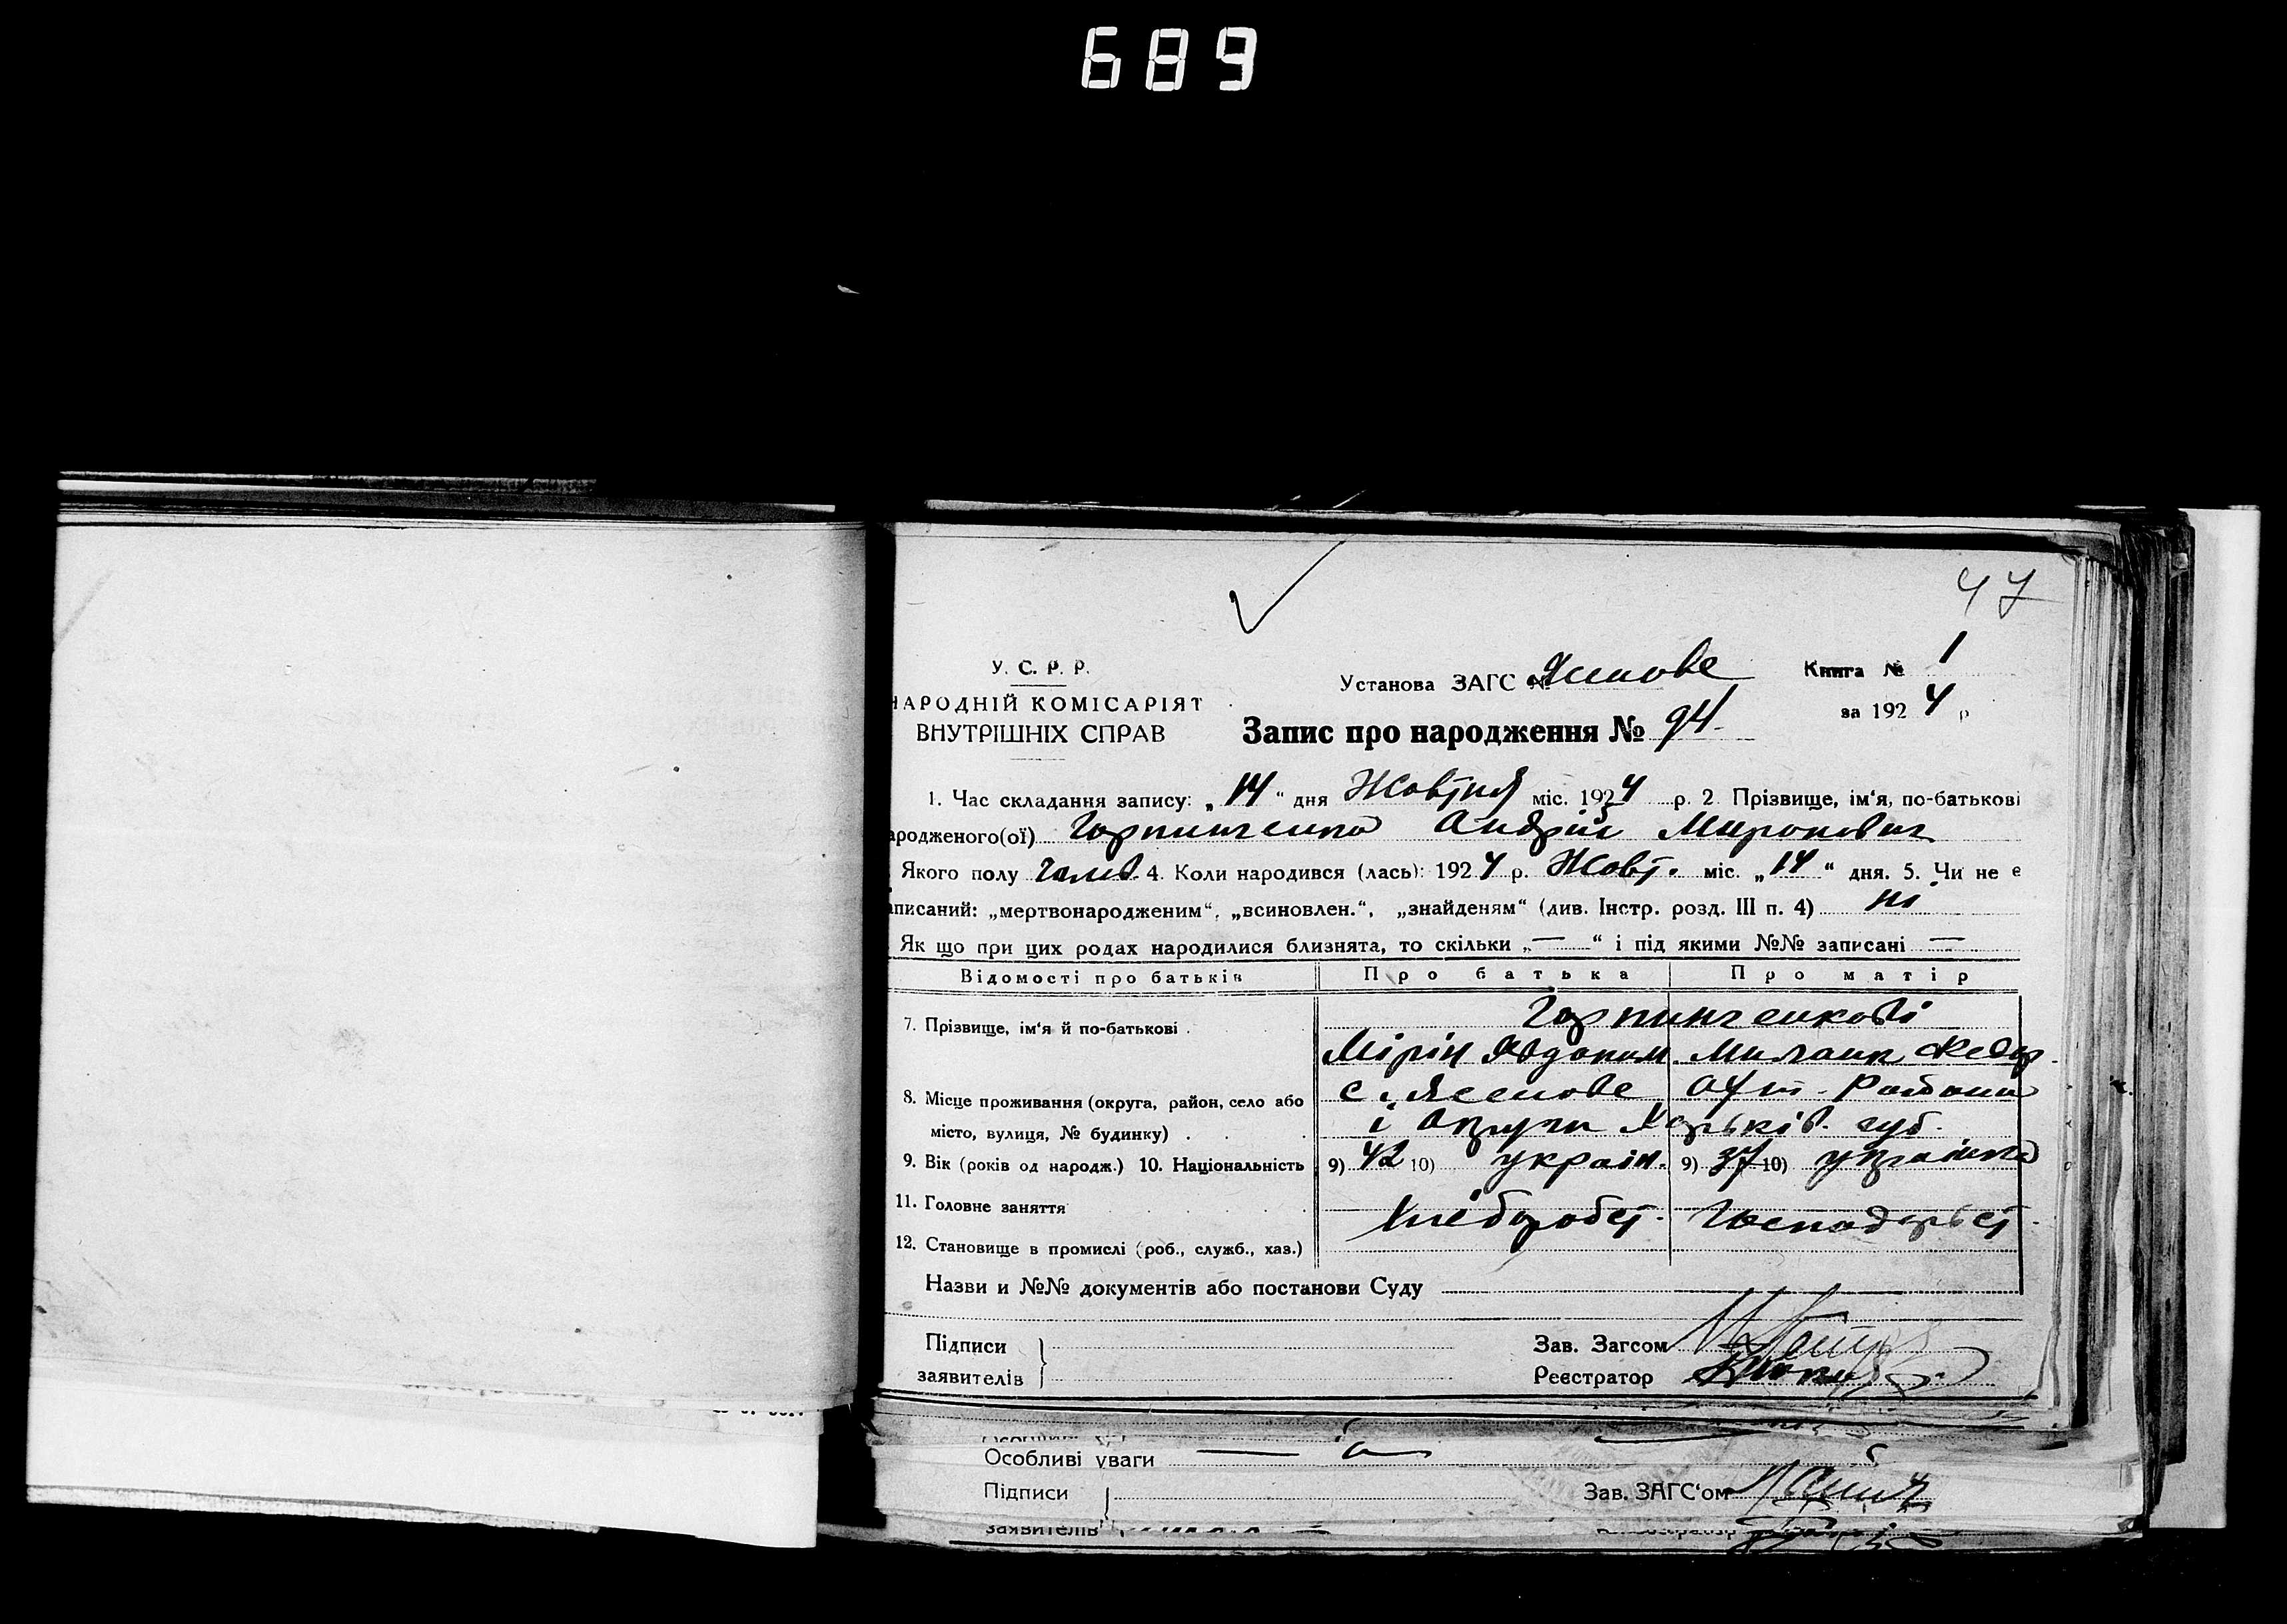 689
47
У. С. Р. Р.
НАРОДНІЙ КОМІСАРІЯТ
ВНУТРІШНІХ СПРАВ
Установа ЗАГС № Ясенове
Книга № 1
за 1924 р
Запис про народження № 94
1. Час складання запису: „14“ дня Жовтня міс. 1924 р. 2. Прізвище, ім‘я, по-батькові
ародженого(ої) Горпинченко Андрій Миронович
Якого полу чолов. 4. Коли народився (лась): 1924 р. Жовт. міс. „14“ дня. 5. Чи не є
аписаний: „мертвонародженим“, „всиновлен.“, „знайденям“ (див. Інстр. розд. III п. 4) ні
Як що при цих родах народилися близнята, то скільки „—“ і під якими №№ записані —
Відомості про батьків Про батька Про матір
7. Прізвище, ім‘я й по-батькові . Горпинченкові
Мірін Явдоким. Федор.
8. Місце проживання (округа, район, село або с. Ясенове Охт. Району
місто, вулиця, № будинку) . і Округи Харьків. губ.
9. Вік (років од народж.) 10. Національність 9) 42 10) україн. 9) 37 10) українка
11. Головне заняття Хліборобст. Господарьст.
12. Становище в промислі (роб., служб., хаз.)
Назви и №№ документів або постанови Суду
Підписи
заявителів
Зав. Загсом
Реєстратор
Особливі уваги
Підписи
Зав. ЗАГС‘ом
заявителів